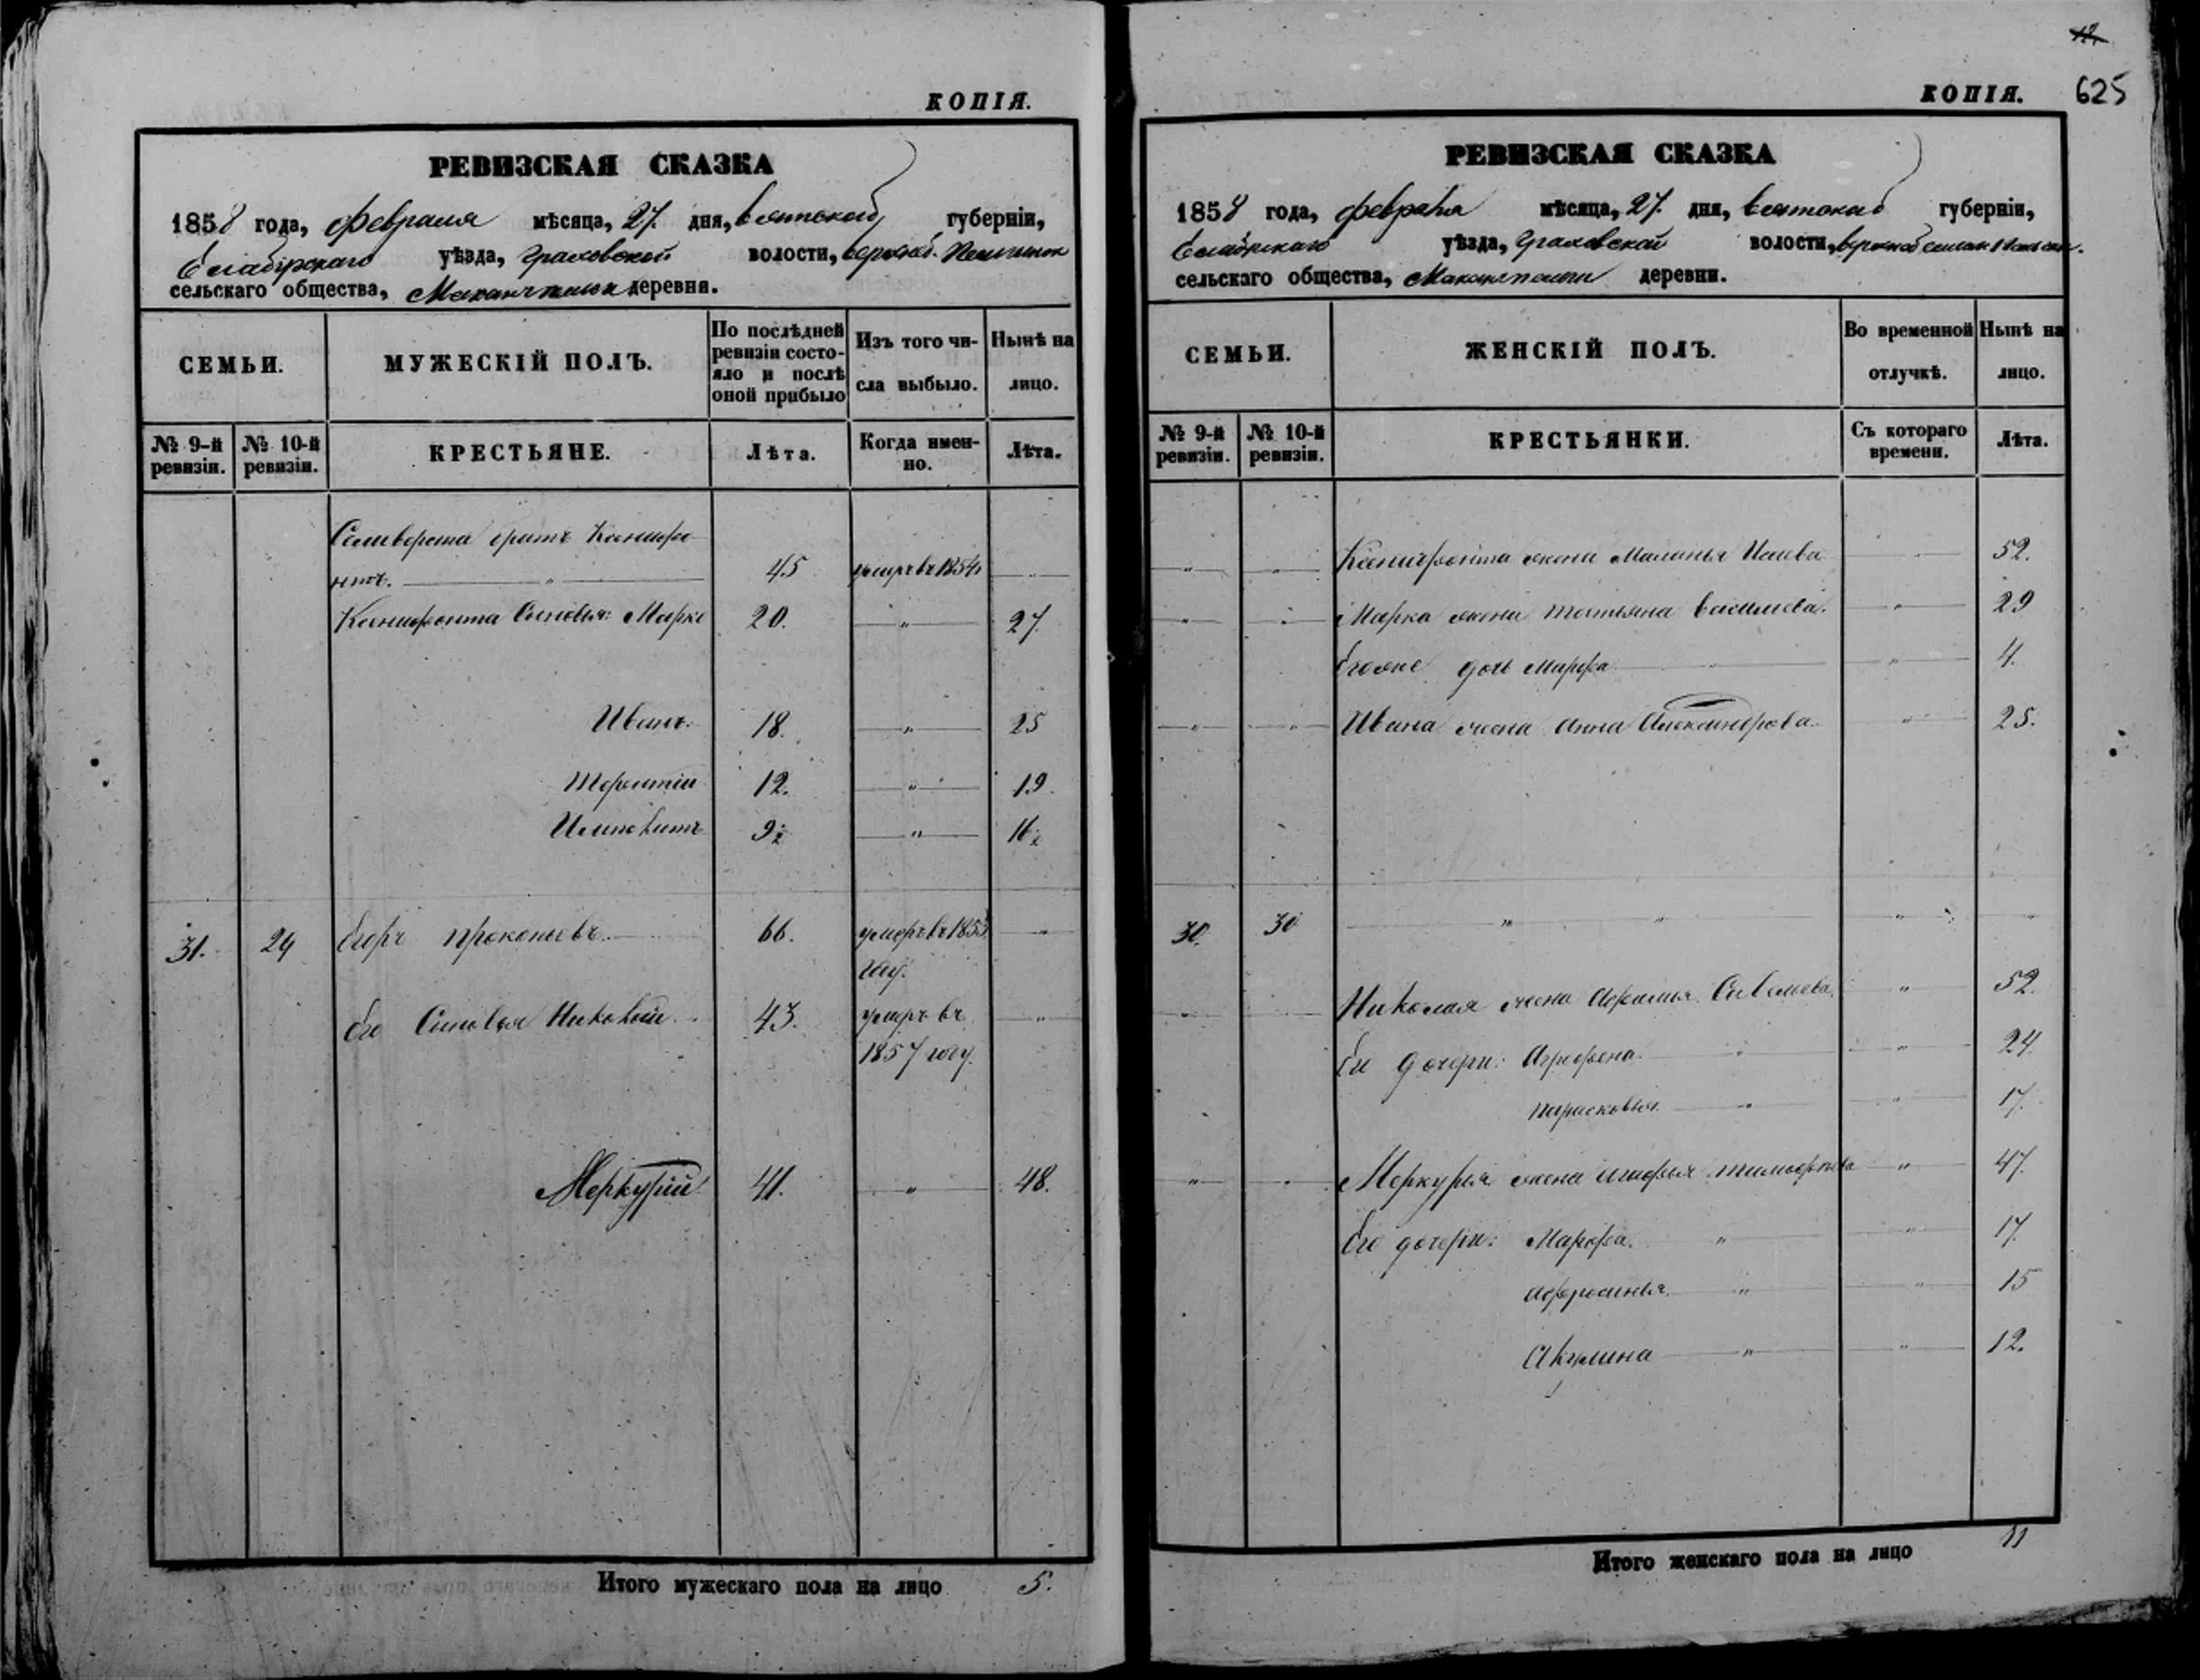 КОПІЯ.
РЕВИЗСКАЯ СКАЗКА
1858 года, февраля мѣсяца, 27. дня, вятской губерніи,
Елабугскаго уѣзда, Граховской волости,
сельскаго общества, деревня.
СЕМЬИ.
МУЖЕСКІЙ ПОЛЪ.
По послѣдней ревизіи состо-
яло и послѣ
оной прибыло
Изъ того чи-
сла выбыло.
Нынѣ на
лицо.
№ 9-й ревизіи.
№ 10-й ревизіи.
КРЕСТЬЯНЕ.
Лѣта.
Когда имен-
но.
Лѣта.
Селиверста братъ Ксенофо
нтъ. 45 умеръ въ 1854
Ксенофонта Сыновья: Марко 20. " 27.
Иванъ. 18. " 25
Терентій 12. " 19.
9½ " 16½
31. 29 Егоръ Прокопьевъ 66. умеръ въ 1853 "
году.
Его Сыновья Николай 43. умеръ въ "
1857 году.
Меркурій 41. " 48.
Итого мужескаго пола на лицо 5.
12
КОПІЯ. 625
РЕВИЗСКАЯ СКАЗКА
1858 года, февраля мѣсяца, 27. дня, вятской губерніи,
Елабугскаго уѣзда, Граховской волости,
сельскаго общества, деревни.
СЕМЬИ.
ЖЕНСКІЙ ПОЛЪ.
Во временной
отлучкѣ.
Нынѣ на
лицо.
№ 9-й ревизіи.
№ 10-й ревизіи.
КРЕСТЬЯНКИ.
Съ котораго
времени.
Лѣта.
" " Ксенофонта жена Маланья Исаева " 52.
" " Марка жена Татьяна Васильева. " 29
Егоже дочь Марфа " 4.
" " Ивана жена Анна Александрова. " 25.
30. 30 " " " "
" Николая жена Савельева " 52.
Ея дочери: Агрофена. " " 24.
Парасковья " " 17.
" " Меркурья жена Агафья Тимофеева " 47.
Его дочери: Марфа. " " 17.
Афросинья " " 15
Акулина " " 12.
Итого женскаго пола на лицо 11